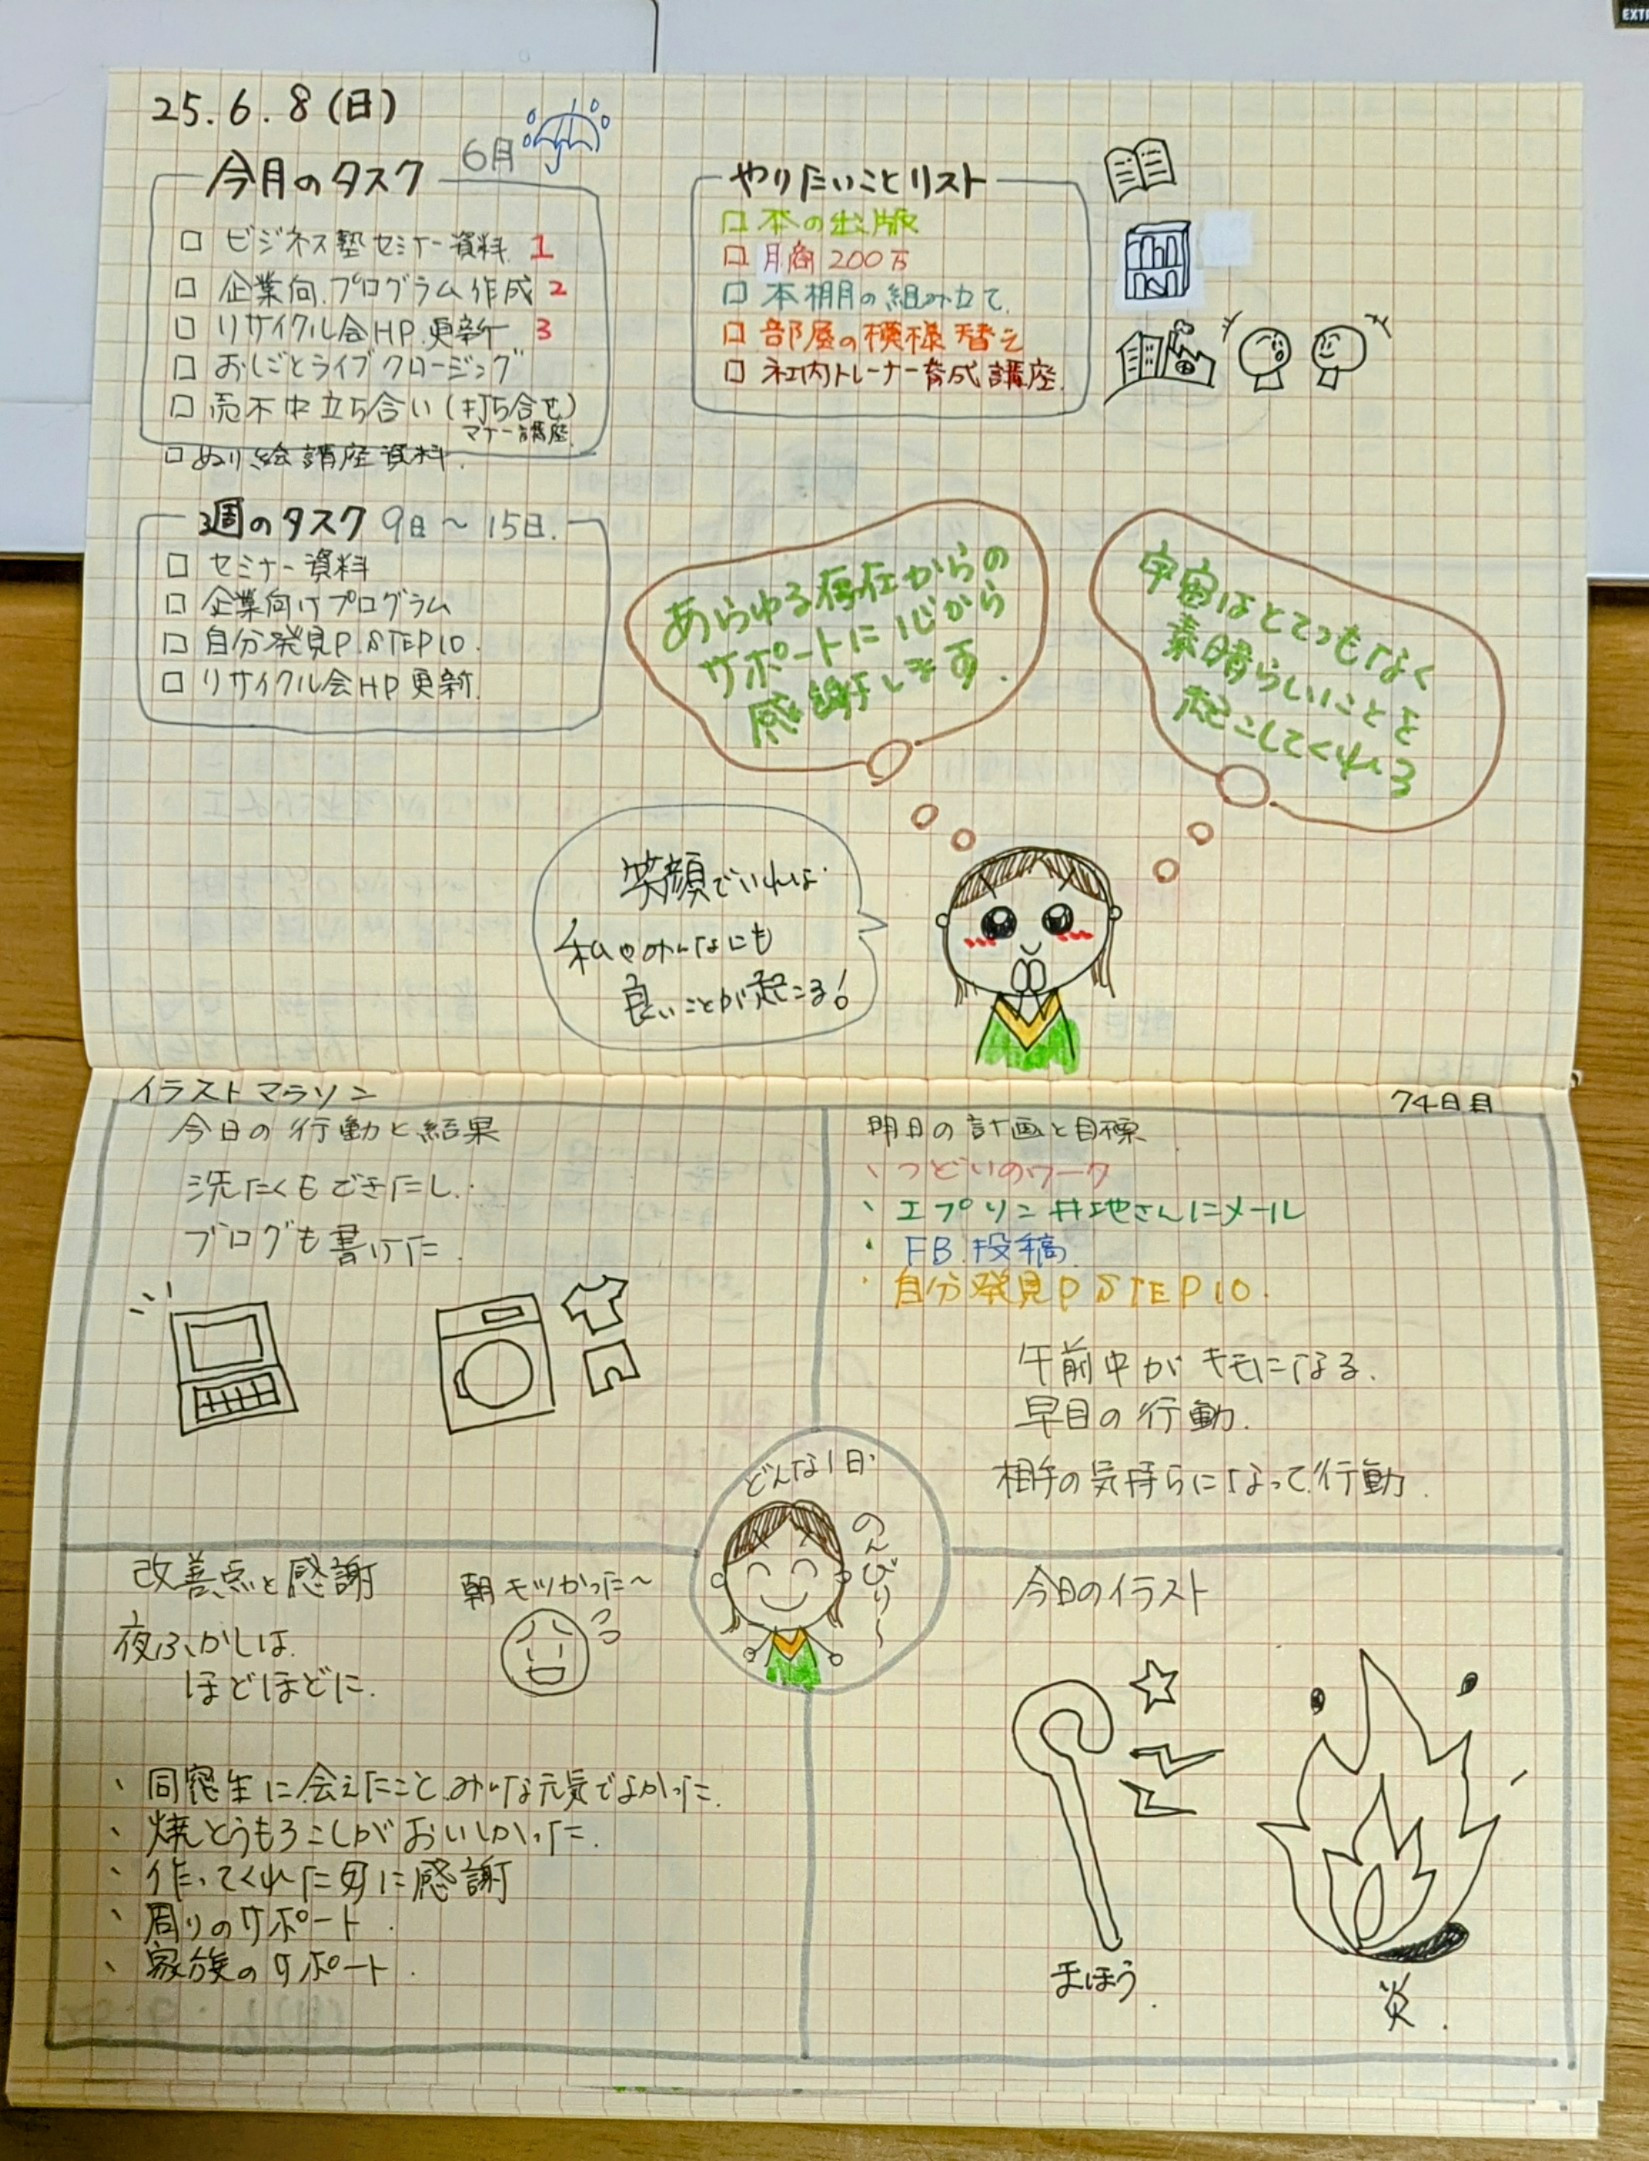 25.6.8(日)
今月のタスク 6月
□ ビジネス塾セミナー資料 1
□ 企業向.プログラム作成 2
□ リサイクル会HP.更新 3
□ おしごとライブクロージング
□ 立ち合い(打ち合せ)
マナー講座.
□ぬり絵講座資料.
やりたいことリスト
□ 本の出版
□ 月商200万
□ 本棚の組み立て
□ 部屋の模様替え
□ 社内トレーナー育成講座.
週のタスク 9日〜15日.
□ セミナー資料
□ 企業向けプログラム
□ 自分発見P.STEP10.
□ リサイクル会HP更新.
あらゆる存在からの
サポートに心から
感謝します.
宇宙はとてつもなく
素晴らしいことを
起こしてくれる
笑顔でいれば
私やみんなにも
良いことが起こる!
イラストマラソン
74日目
今日の行動と結果
洗たくもできたし.
ブログも書けた.
明日の計画と目標
、つどいのワーク
、エプソン井地さんにメール
・FB.投稿
・自分発見P STEP10.
午前中がキモになる.
早目の行動.
相手の気持ちになって行動.
どんな1日
のんびり〜
改善点と感謝
朝モツかった〜
夜ふかしは
ほどほどに.
、同窓生に会えたこと.みんな元気でよかった.
、焼とうもろこしがおいしかった.
、作ってくれた男に感謝
、周りのサポート.
、家族のサポート.
今日のイラスト
まほう.
炎.